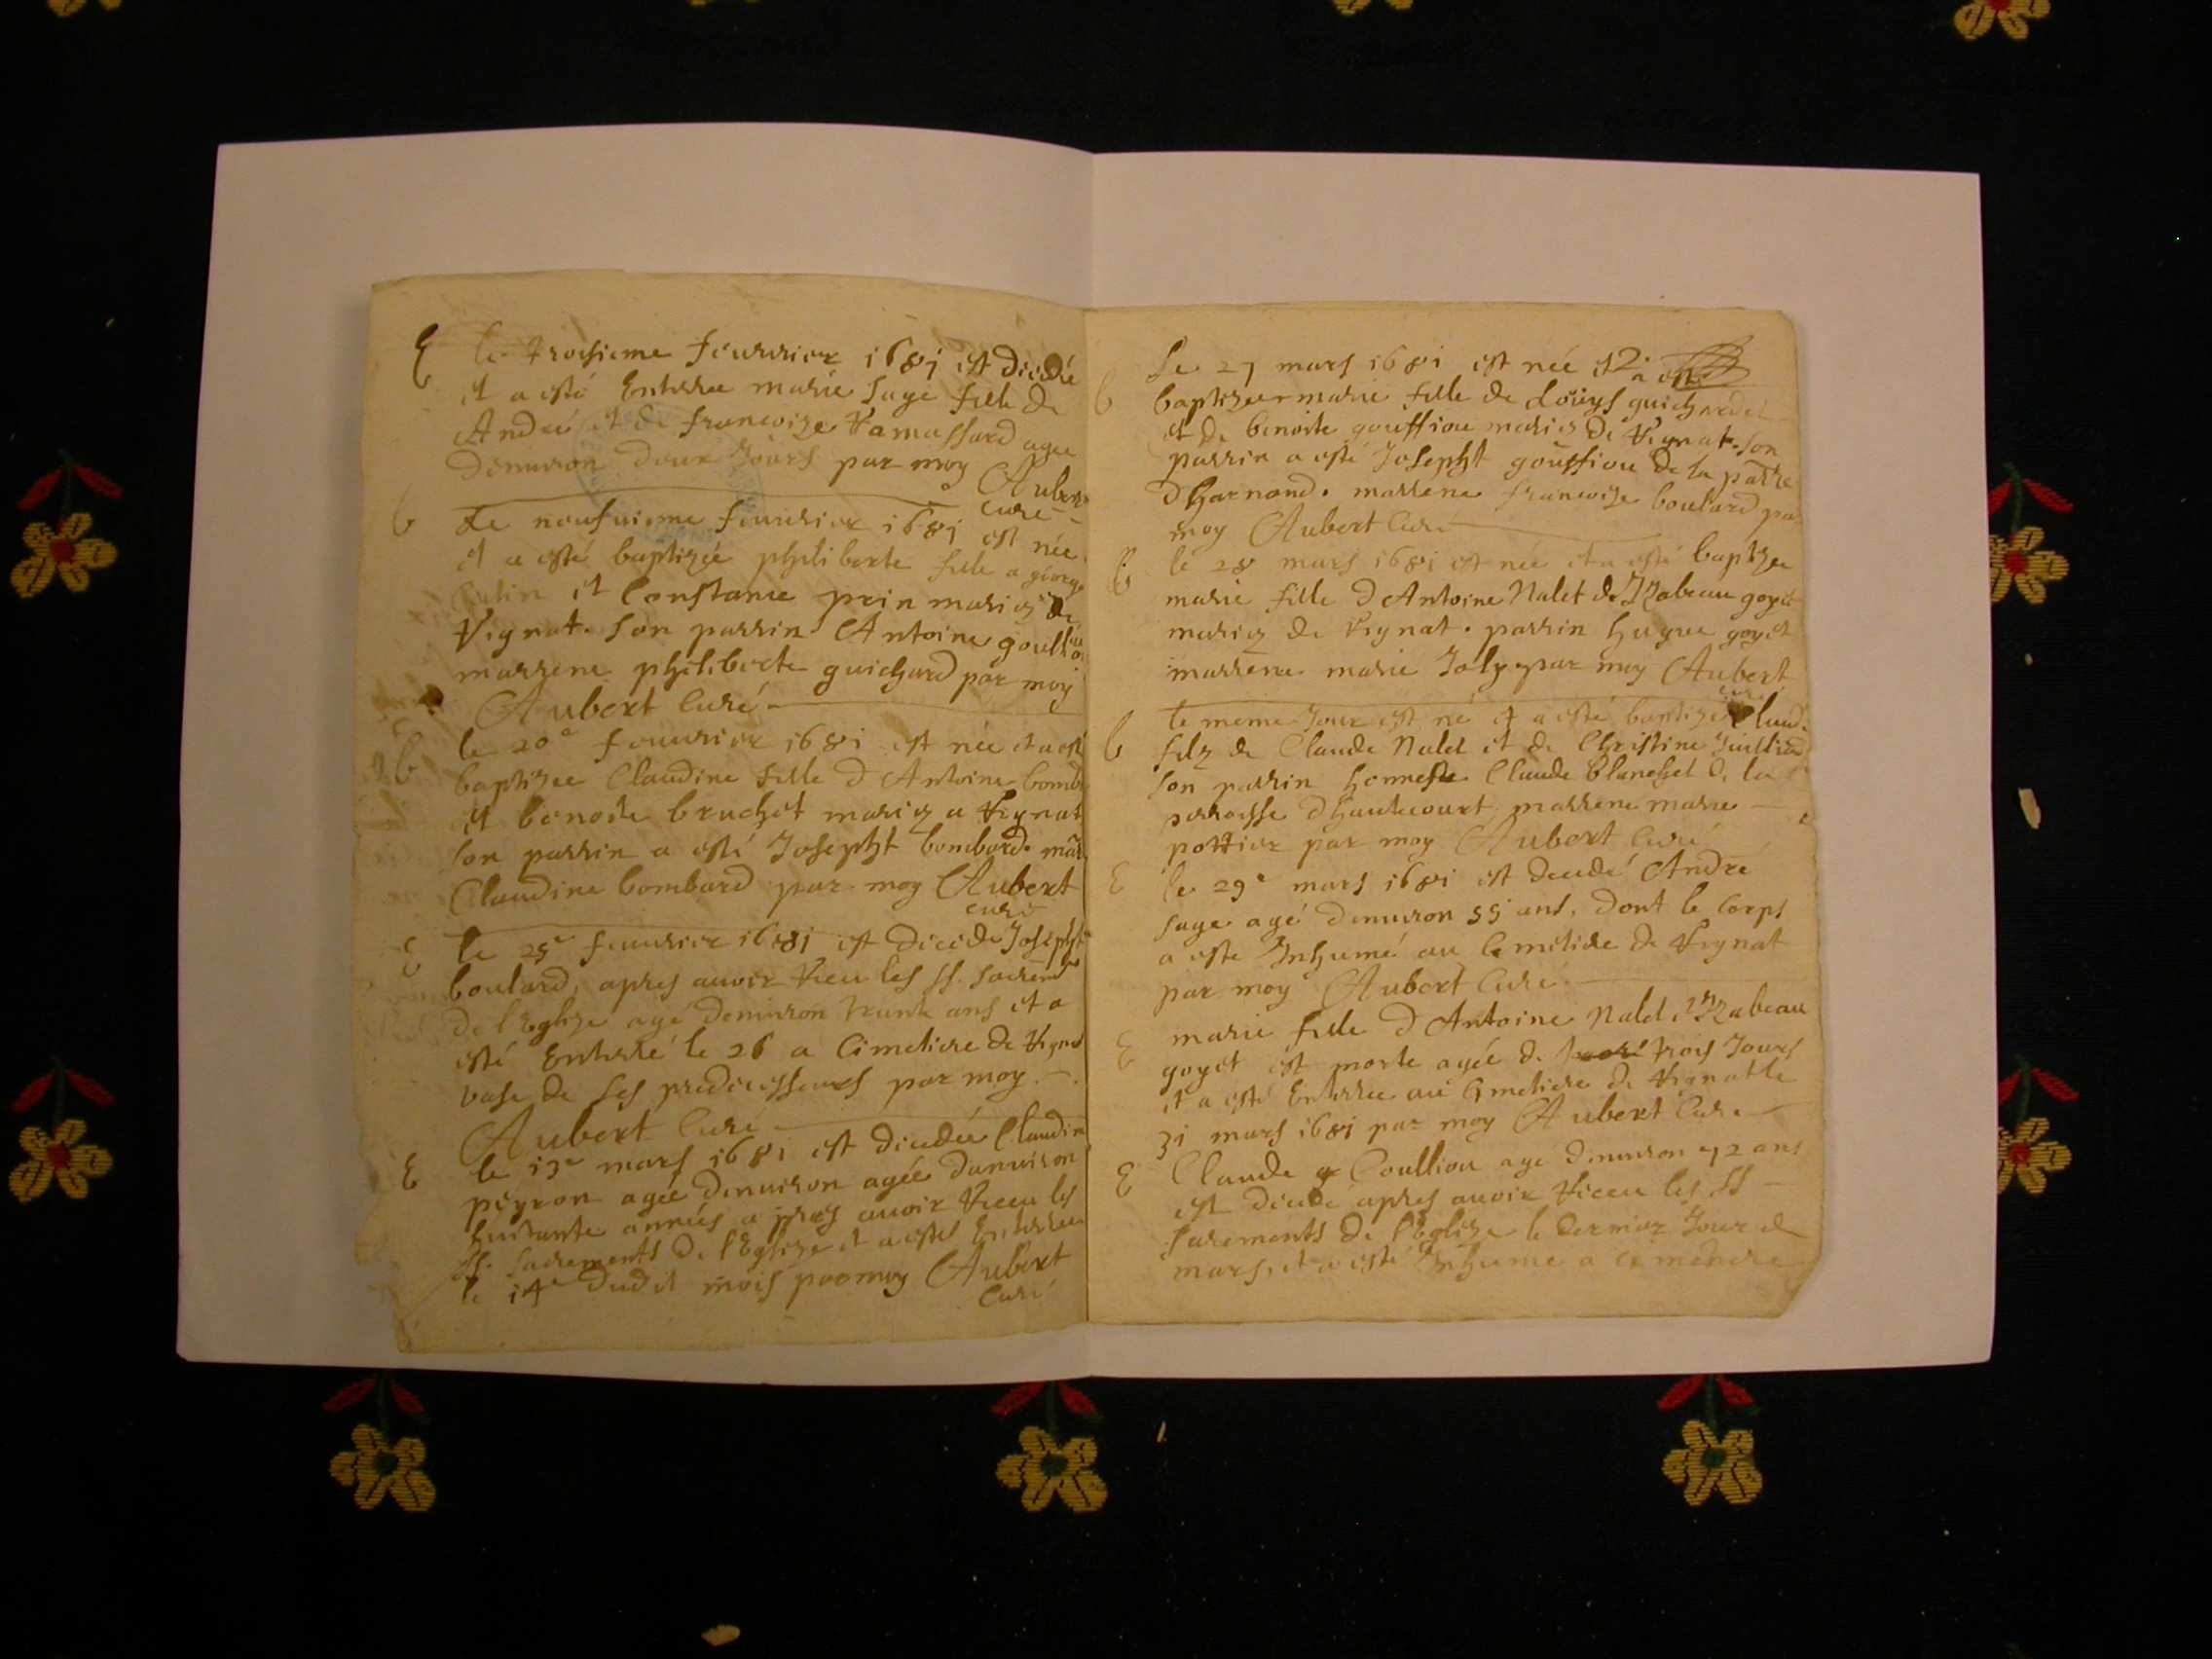 E le troisieme feuurier 1681 est decedée
et a esté Enterree marie sage fille de
André et de francoise Ramassard agee
denuiron deux Jours par moy
Aubert
Curé
b Le neufuieme feuurier 1681 est née
et a esté baptizée philiberte fille a george
et Constance prin mariez de
Vignat. son parrin Antoine
marrene philiberte guichard par moy
Aubert Curé
b le 20e feuurier 1681 est née et a esté
baptizee Claudine fille d Antoine
et benoite bruchet mariez a Vignat
son parrin a esté Josepht bombard. mar
Claudine bombard par moy Aubert
curé
E le 25e feuurier 1681 est decede Josepht
boulard, apres auoir Receu les SS. Sacrem
de l Eglize agé denuiron trante ans et a
esté Enterré le 26 a Cimetiere de
vase de ses predecesseurs par moy
Aubert Curé
E le 13e mars 1681 est decedée Claudine
peyron agée denuiron agée danuiron
huitante années apres auoir Receu les
SS. Sacrements de l Eglize et a estes Enterree
le 14e dudit mois par moy Aubert
Curé
Le 27 mars 1681 est née et
a esté
b baptizee marie fille de Loüys guichardet
et de benoite gouffiou mariez de Vignat. son
parrin a esté Josepht gouffiou de la parre
d harnand. marrene francoize boulard par
moy Aubert Curé
b le 28 mars 1681 est née et a esté baptizee
marie fille d Antoine Nalet de Izabeau goyet
mariez de Vignat. parrin hugue goyet
marrene marie Joly par moy Aubert
curé
le meme Jour est né et a esté baptizé Claud.
b filz de Claude Nalet et de Christine
son parrin honneste Claude blanchet de la
parroisse d hautecourt marrene marie
pottier par moy Aubert Curé
E le 29e mars 1681 est decedé André
sage agé denuiron 55 ans, dont le Corps
a este Inhumé au Cemetiere de Vignat
par moy Aubert Curé
E marie fille d Antoine Nalet Izabeau
goyet est morte agée de trois Jours
et a esté Enterree au Cimetiere de Vignat le
31 mars 1681 par moy Aubert Curé
E Claude Coulliou agé denuiron 72 ans
est decedé apres auoir Receu les SS
sacrements de l Eglize le dernier Jour de
mars, et a esté Inhume a cemetiere